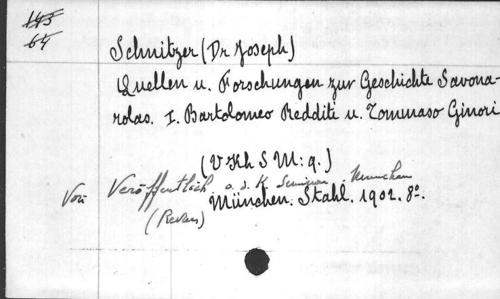 143
64
Schnitzer (Dr Joseph)
Quellen u. Forschungen zur Geschichte Savona-
rolas. I. Bartolomeo Redditi u. Tommaso Ginori
(V Kh S M: 9.)
Voir Veröffentlich. a. d. K. Seminar. München
München. Stahl. 1902. 8º.
(Revues)